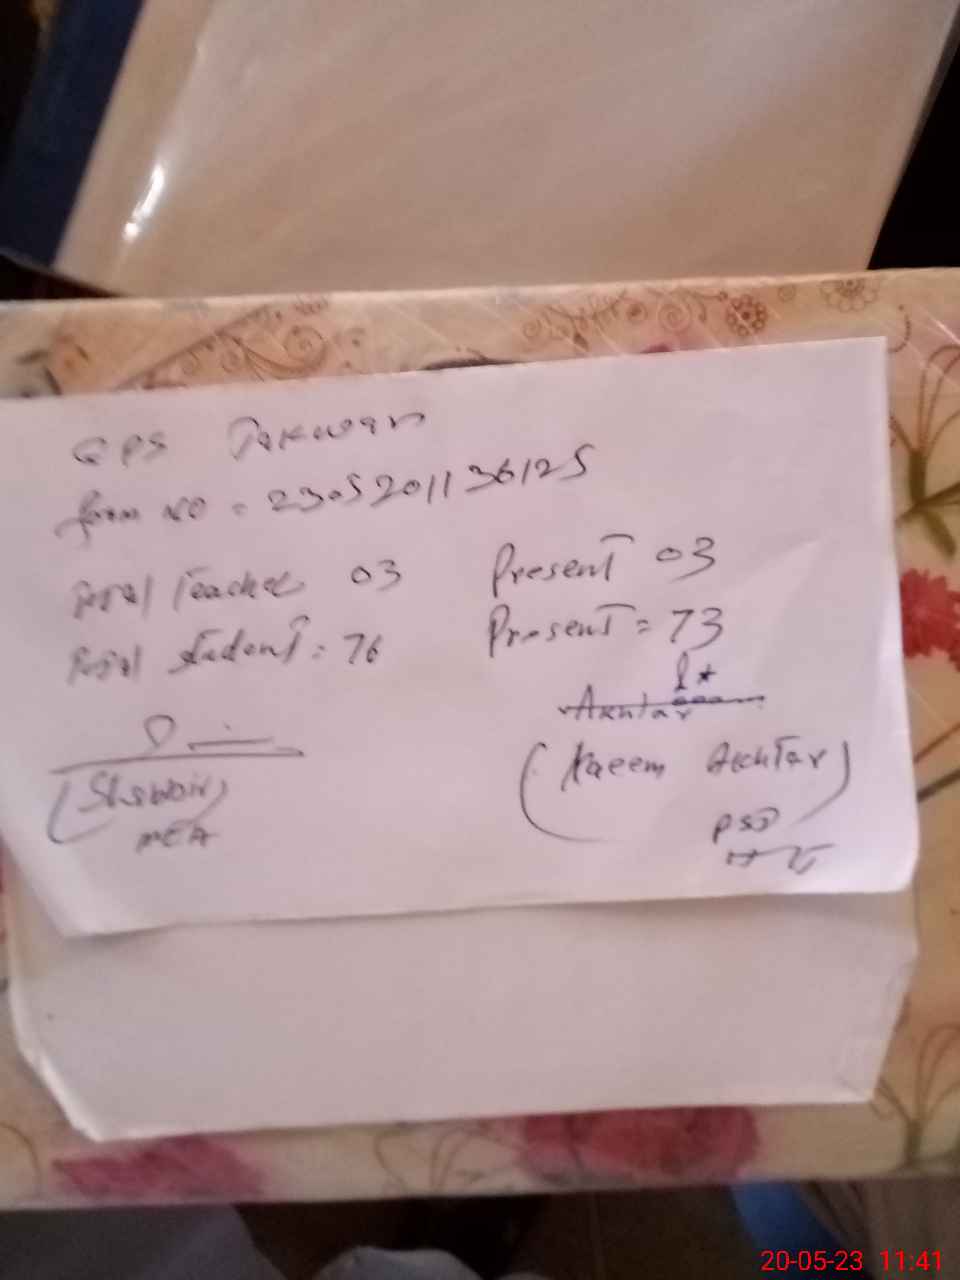 GPS Takwari
form NO = 2305201136125
Total Teacher 03 Present 03
Total student = 76 Present = 73
Akhtar
(Naeem Akhtar)
MEA
PST
20-05-23 11:41